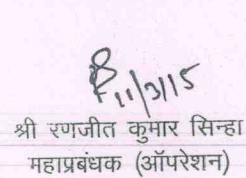 11/3/15
श्री रणजीत कुमार सिन्हा
महाप्रबंधक (ऑपरेशन)